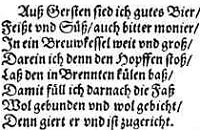 Auß Gersten sied ich gutes Bier/
Feißt vnd Süß/ auch bitter monier/
In ein Breuwkessel weit vnd groß/
Darein ich denn den Hopffen stoß/
Laß den in Brennten külen baß/
Damit füll ich darnach die Faß
Wol gebunden vnd wol gebicht/
Denn giert er vnd ist zugericht.